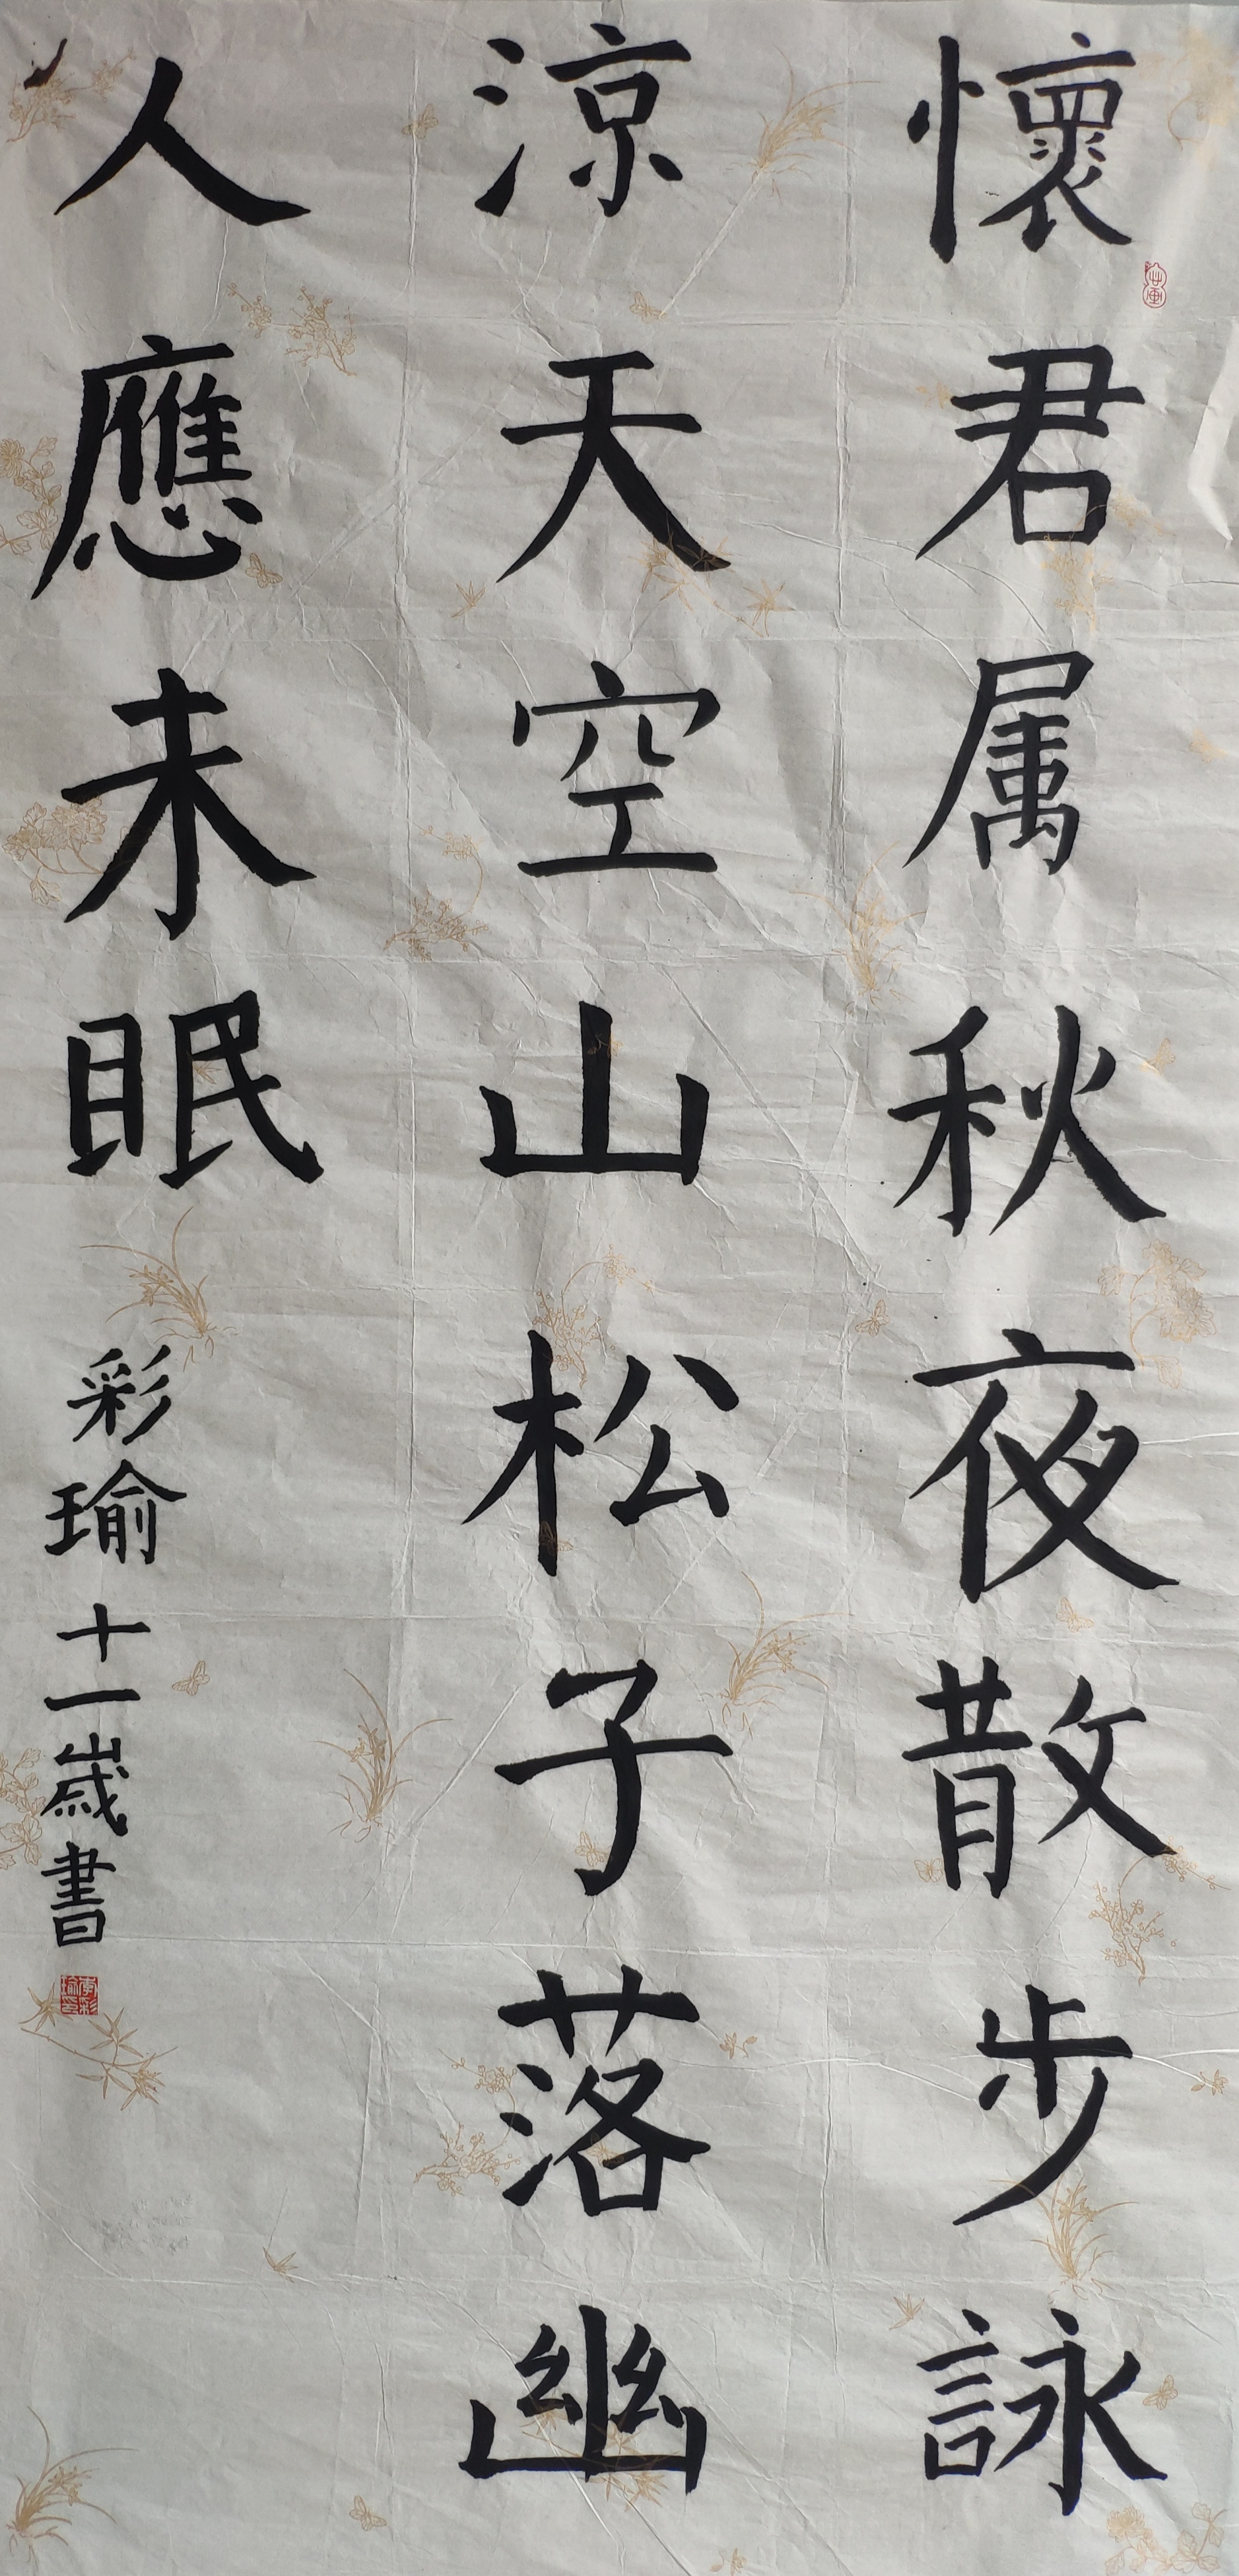 懷君属秋夜散步詠
涼天空山松子落幽
人應未眠
彩瑜十一歲書